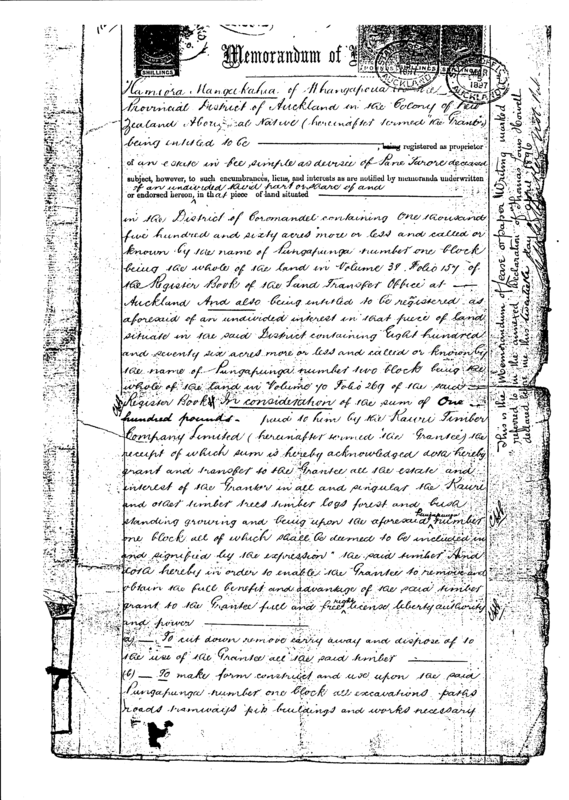 SHILLINGS
Memorandum of
AUCKLAND
1897
AUCKLAND
Hamiora Mangakahia of Whangapoua
Provincial District of Auckland in the Colony of New
Zealand Aboriginal Native (hereinafter termed "the Grantor")
being entitled to be registered as proprietor
of an estate in fee simple as devisee of Pane Turore deceased
subject, however, to such encumbrances, liens, and interests as are notified by memoranda underwritten
or endorsed hereon, in of an undivided third part or share of and that piece of land situated
in the District of Coromandel containing One thousand
five hundred and sixty acres more or less and called or
known by the name of Pungapunga number one block
being the whole of the land in Volume 39 Folio 157 of
the Register Book of the Land Transfer Office at
Auckland And also being entitled to be registered as
aforesaid of an undivided interest in that piece of land
situate in the said District containing Eight hundred
and seventy six acres more or less and called or known by
the name of Pungapunga number two block being the
whole of the land in Volume 70 Folio 269 of the said
Register Book In consideration of the sum of One
hundred pounds - paid to him by the Kauri Timber
Company Limited (hereinafter termed "the Grantee") the
receipt of which sum is hereby acknowledged doth hereby
grant and transfer to the Grantee all the estate and
interest of the Grantor in all and singular the Kauri
and other timber trees timber logs forest and bush
standing growing and being upon the aforesaid Pungapunga number
one block all of which shall be deemed to be included in
and signified by the expression "the said timber" And
doth hereby in order to enable the Grantee to remove and
obtain the full benefit and advantage of the said timber
grant to the Grantee full and free right license liberty authority
and power
a) — To cut down remove carry away and dispose of to
the use of the Grantee all the said timber
(b) — To make form construct and use upon the said
Pungapunga number one block all excavations paths
roads tramways pits buildings and works necessary
This is the Memorandum of Lease or paper Writing marked
referred to in the annexed declaration of Thomas Louis
declared before me this twentieth day of April 1896